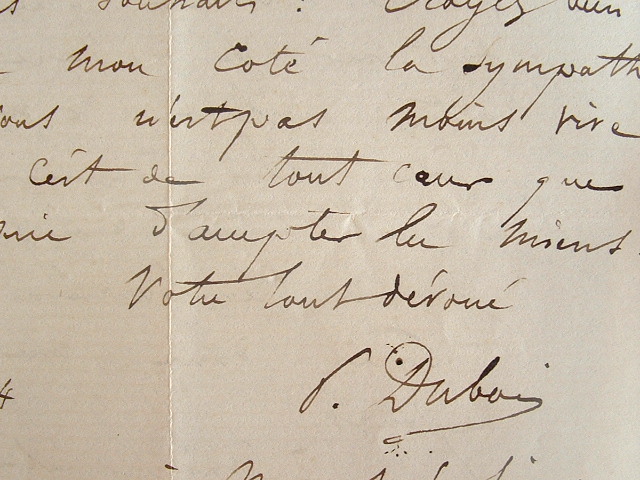 souhaits ! Croyez bien
mon coté la sympath
vous n'est pas moins vive
c'est de tout cœur que
prie d'accepter les miens.
Votre tout dévoué
P. Dubois
4